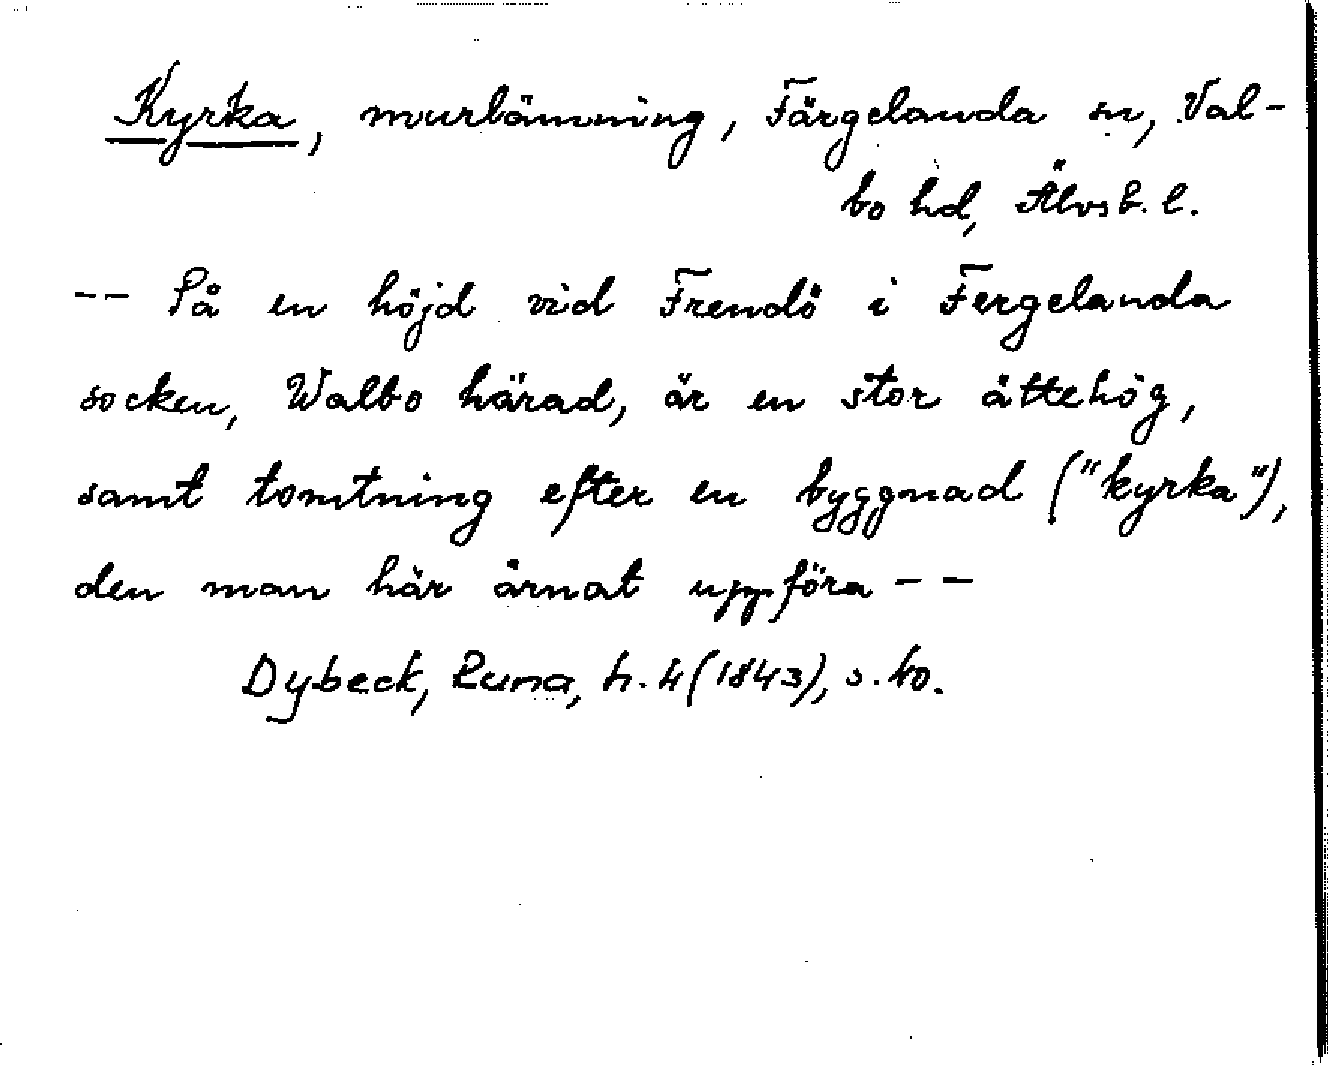 Kyrka, murlämning, Färgelanda sn, Val-
bo hd, Älvsb. l.
-- På en höjd vid Frendö i Fergelanda
socken, Walbo härad, är en stor ättehög,
samt tomtning efter en byggnad ("kyrka"),
den man här ärnat uppföra --
Dybeck, Runa, h. 4 (1843), s. 40.